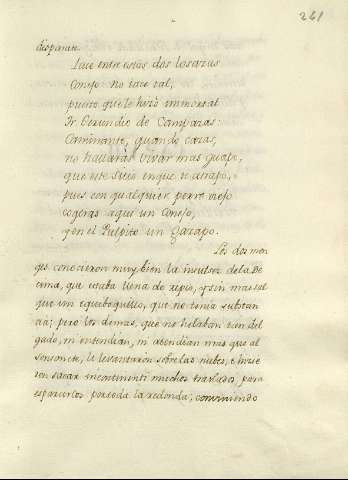 261
disparate.
Iace entre estas dos losazas
Conejo no iace tal,
puesto que le hizo immortal
Fr. Gerundio de Campazas:
Caminante, quando cazas,
no hallarás vivar mas guapo,
que este sitio en que te atrapo,
pues con qualquier perro viejo
cogeras aqui un Conejo,
y en el Pulpito un Gazapo.
Los dos mon
ges conocieron muy bien la insulsez de la De
cima, que estaba llena de ripio, y sin mas sal
que un equeboquillo, que no tenia substan
cia; pero los demas, que no hilaban tan del
gado, ni entendian, ni atendian mas que al
sonsonete, le levantaron sobre las nubes, e hicie
ron sacar incontinenti muchos traslados, para
esparcirlos por toda la redonda, conviniendo